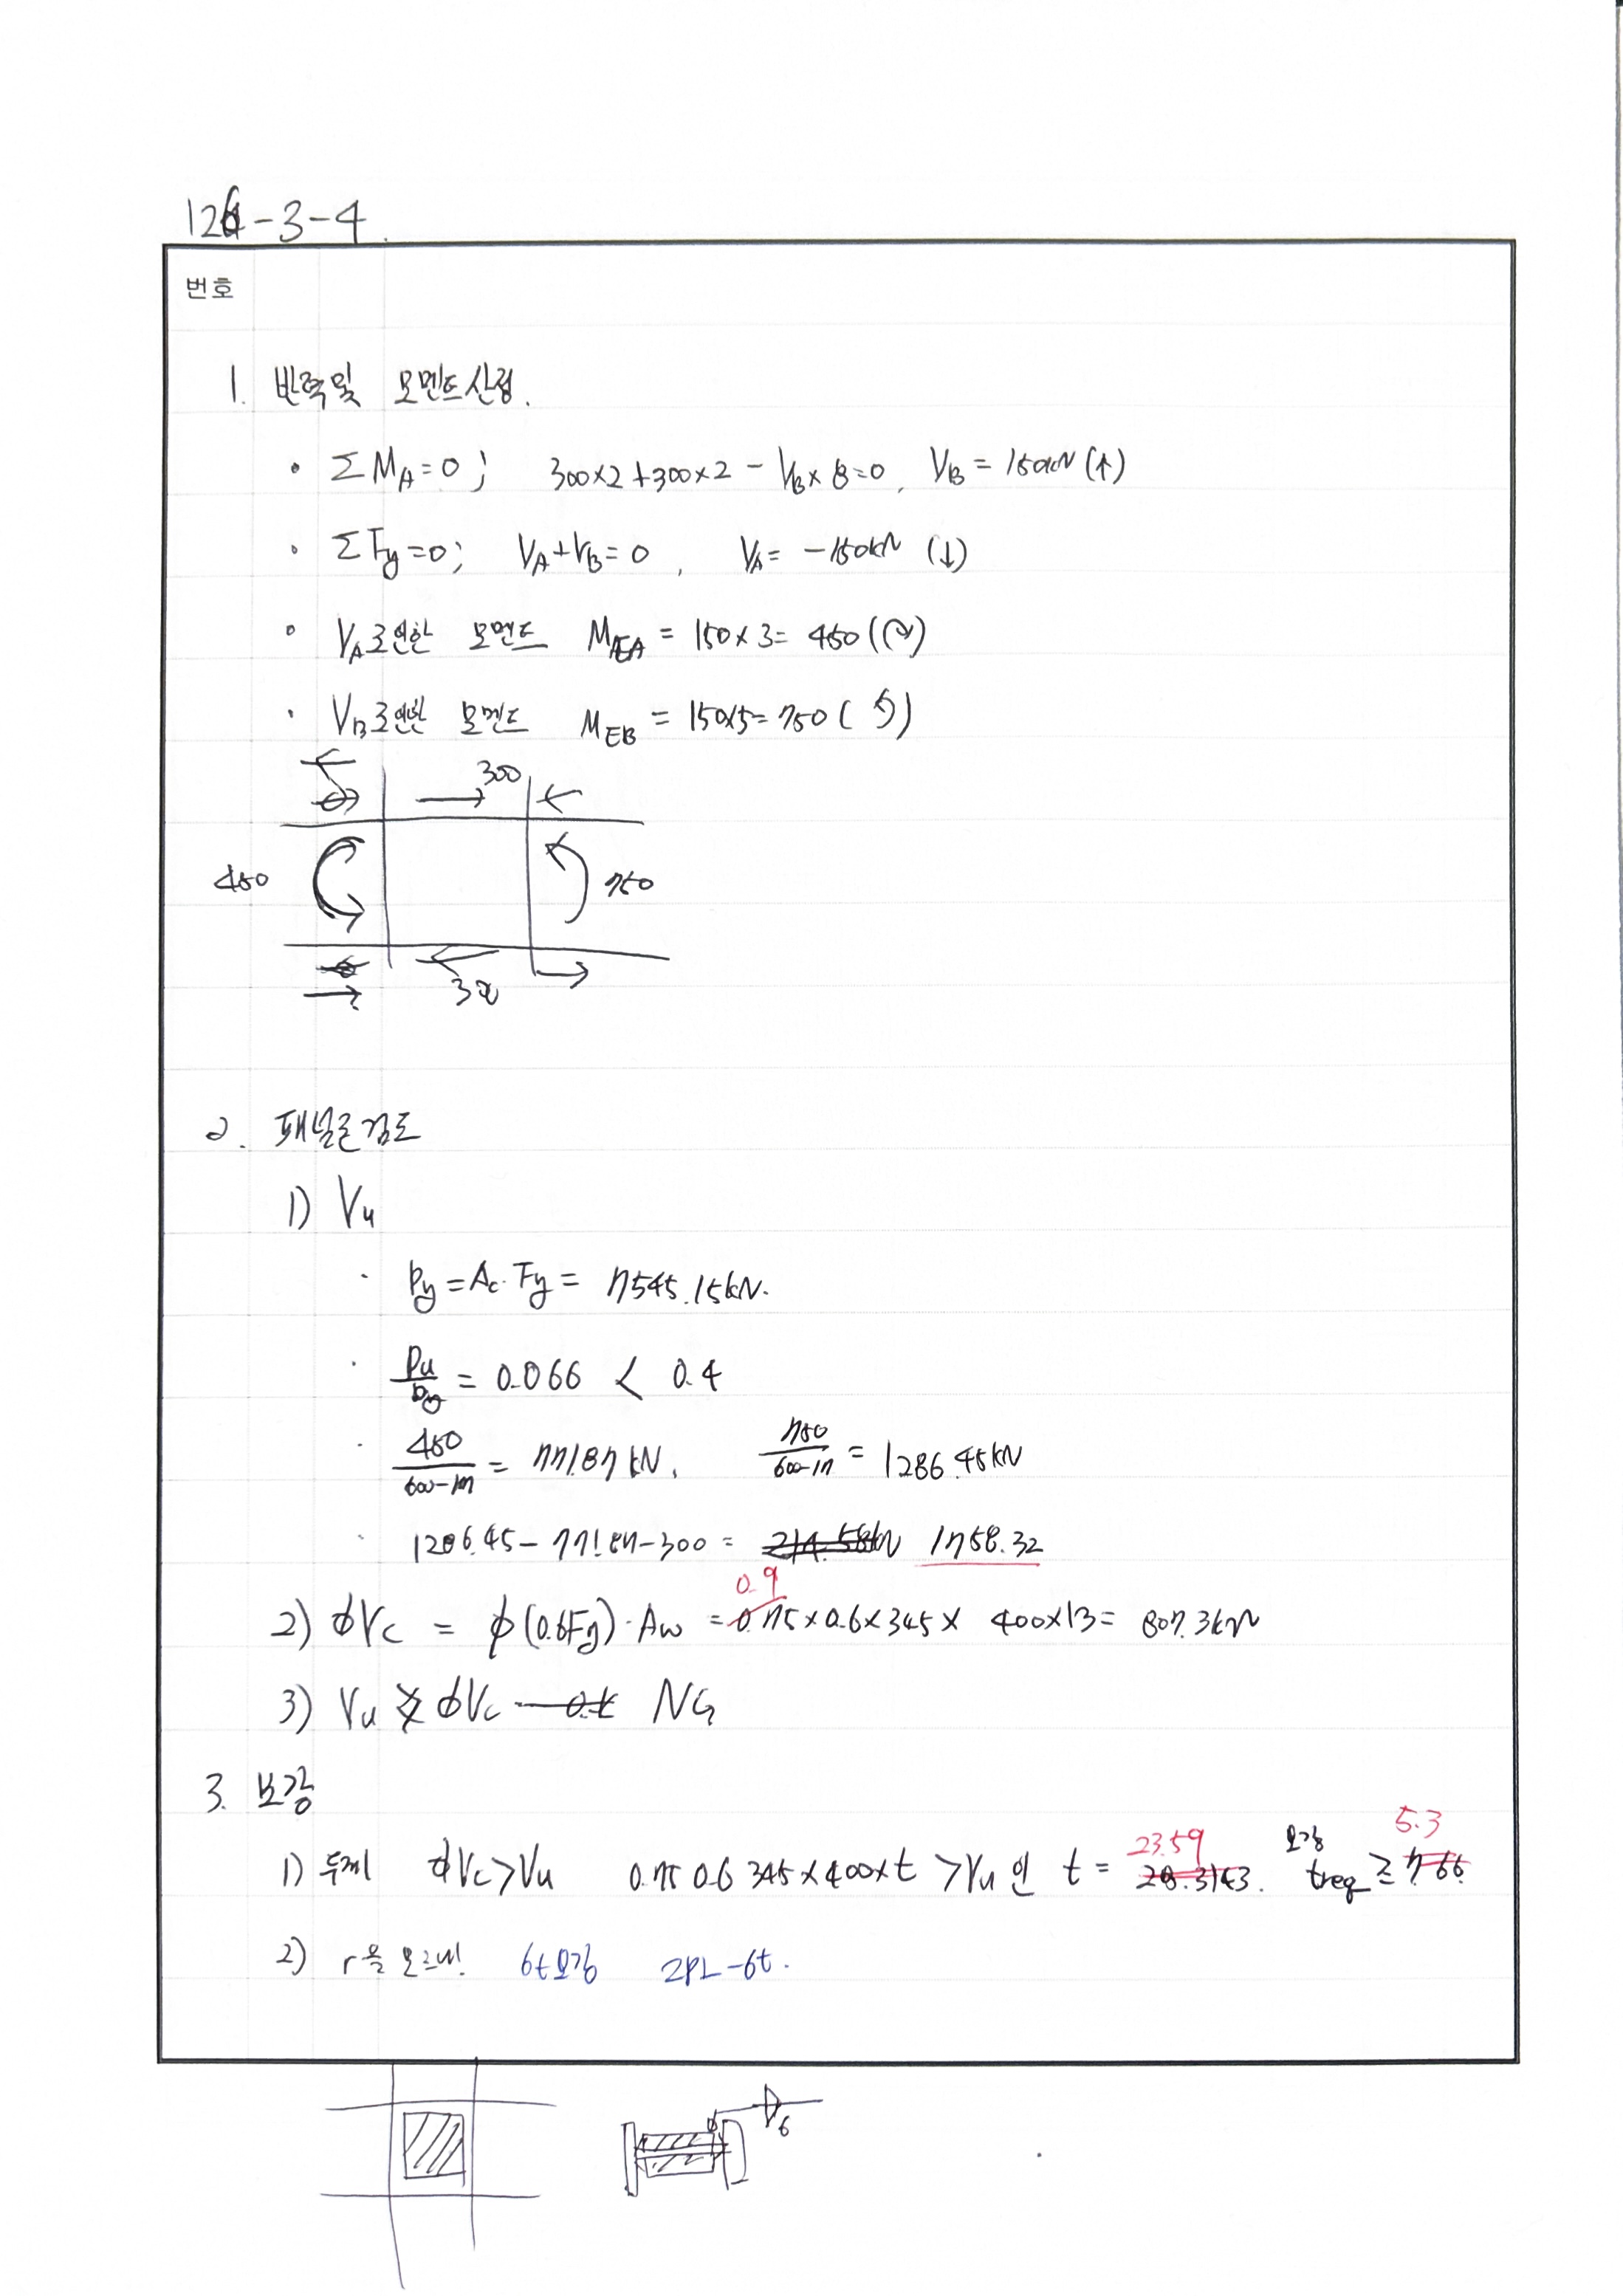 126-3-4.
번호
1. 반력 및 모멘트 산정.
• ΣM_A=0; 300×2+300×2-V_B×8=0, V_B=150kN(↑)
• ΣFy=0; V_A+V_B=0, V_A=-150kN (↓)
• V_A로 인한 모멘트 M_EA=150×3=450(↷)
• V_B로 인한 모멘트 M_EB=150×5=750(↺)
300
450 750
300
2. 패널존 검토
1) Vu
• Py=Ac·Fy=7545.15kN.
• Pu/Py=0.066 < 0.4
• 450/600-17=771.87kN, 750/600-17=1286.45kN
• 1286.45-771.87-300=214.58kN 1758.32
0.9
2) φVc=φ(0.6Fy)·Aw=0.75×0.6×345×400×13=807.3kN
3) Vu ≯ φVc ok NG
3. 보강
23.59 보강 5.3
1) 두께 φVc>Vu 0.75 0.6 345×400×t >Vu 인 t=28.3143. treq ≥ 7.66
2) r을 모르니! 6t보강 2PL-6t.
6